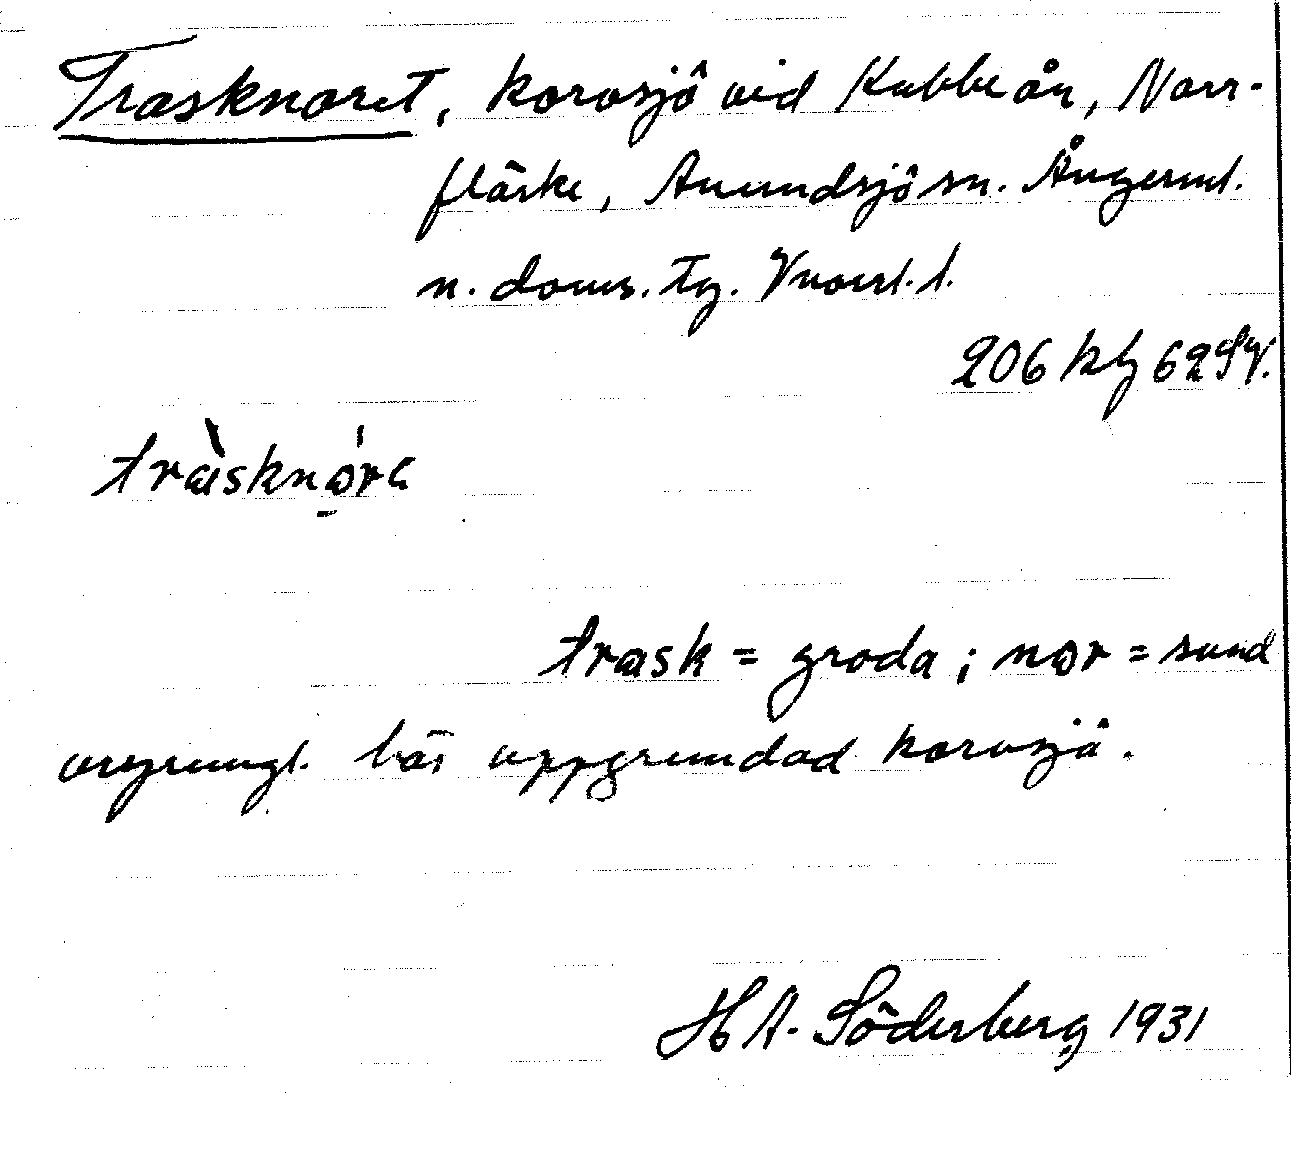 Trasknoret, korvsjö vid Kubbeån, Norr-
flärke, Anundsjö sn. Ångerml.
n. doms. tg. Vnorrl. l.
206 kbg 62 SV.
tràsknǫ́rɛ
trask = groda; nor = sund
ursprungl. här uppgrundad korvsjö.
H A. Söderberg 1931